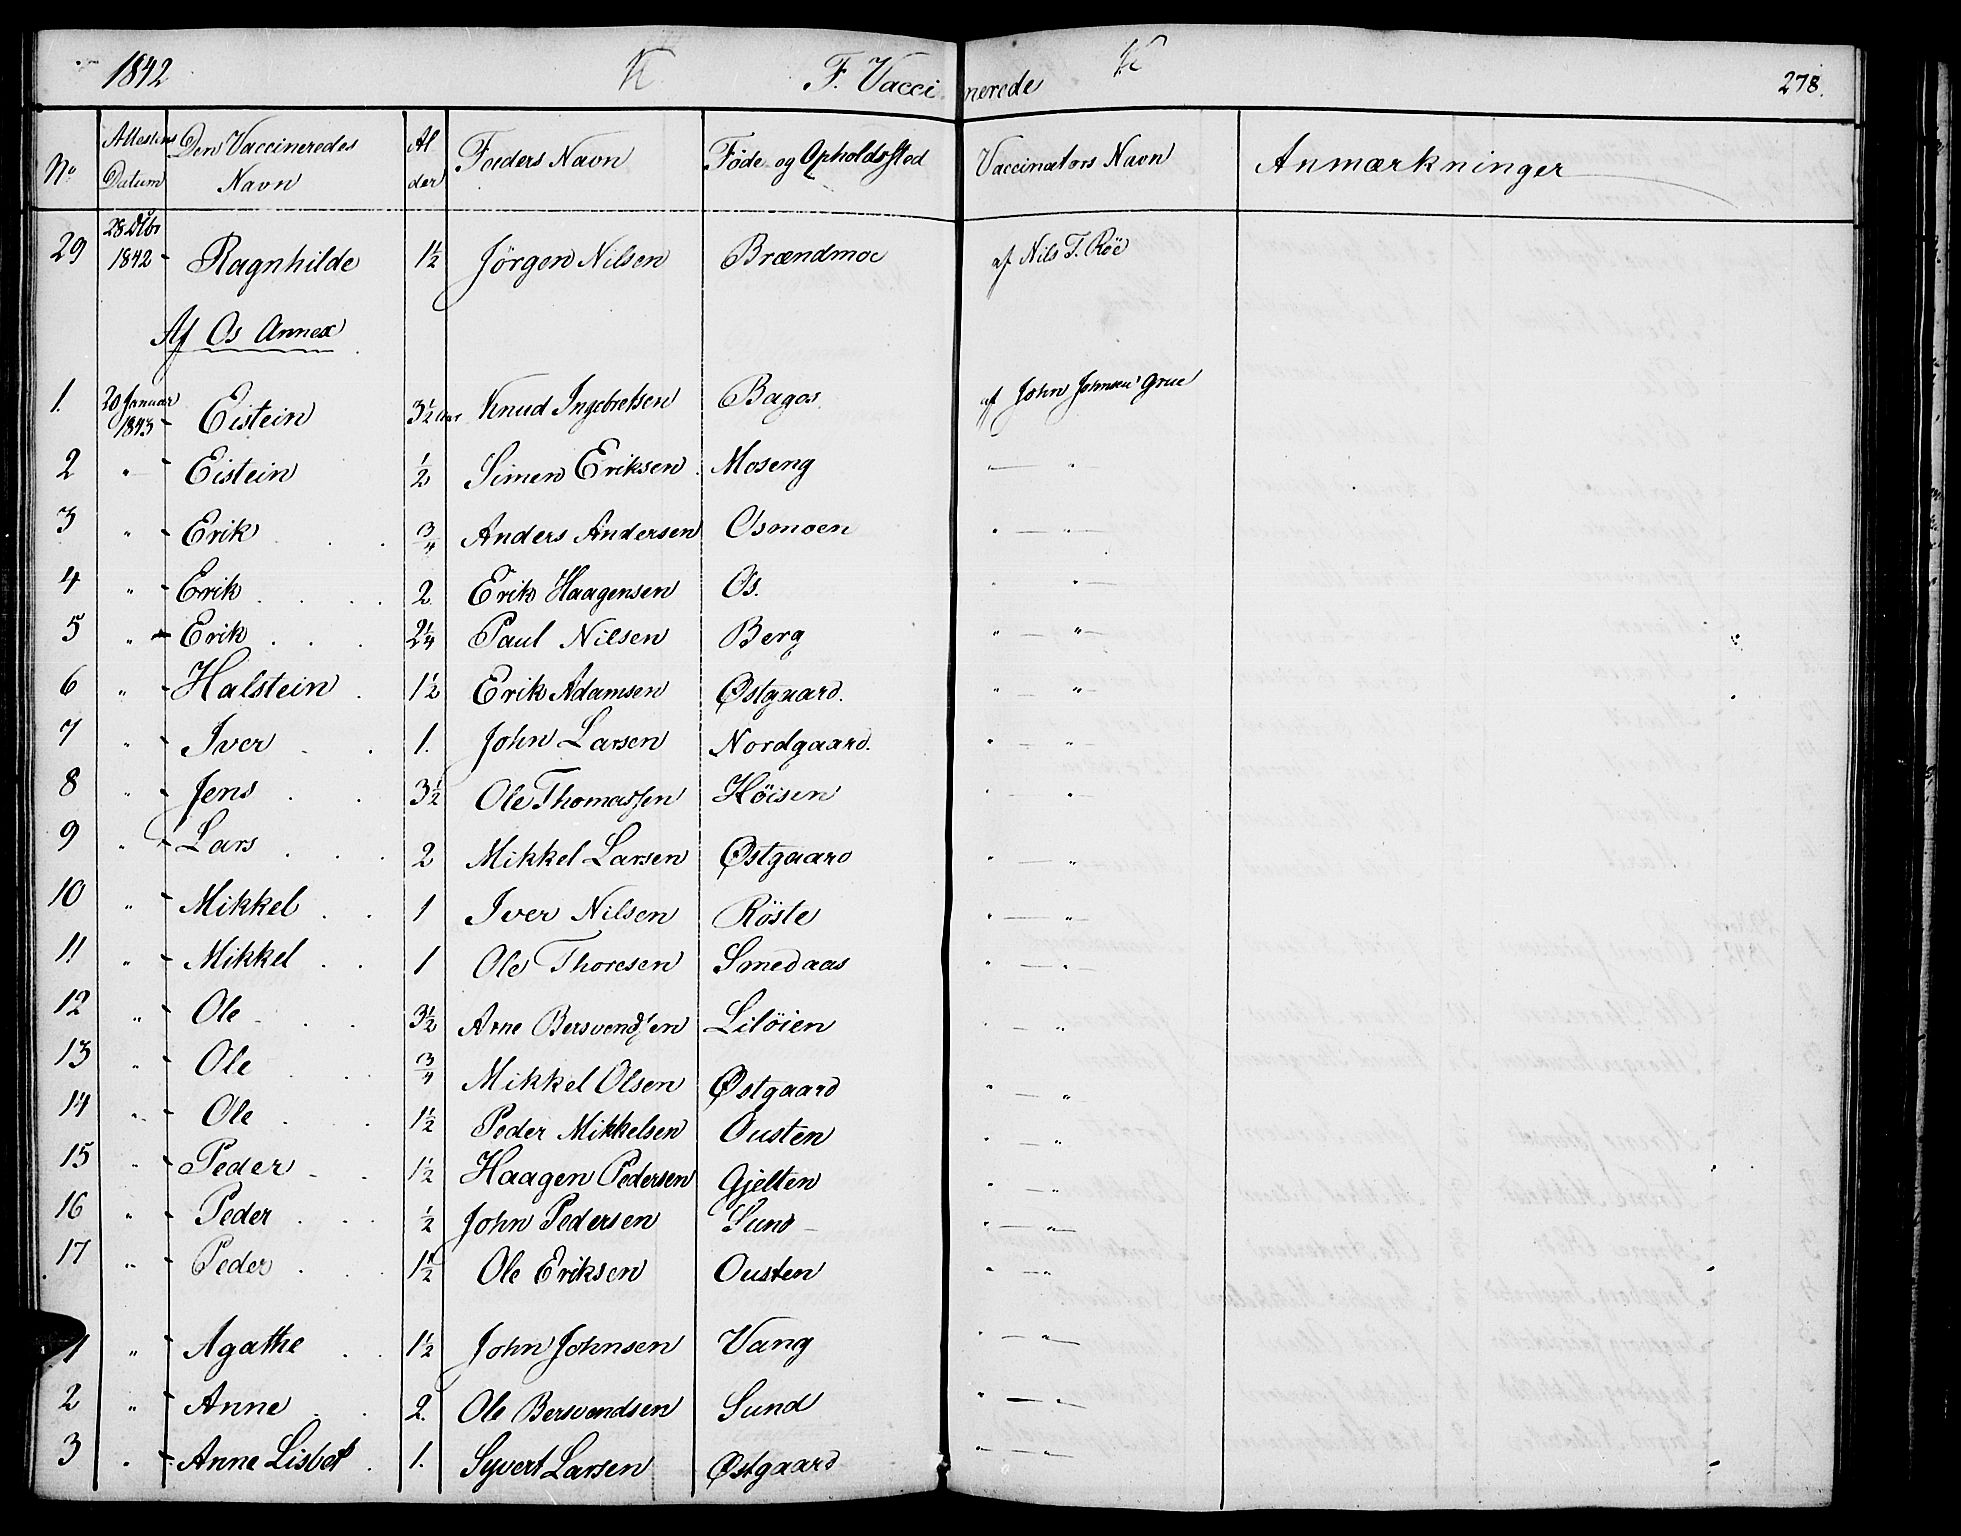 1842 F. Vaccinerede 278.
No Attestens Datum Den Vaccineredes Navn Alder Faders Navn Føde og Opholdssted Vaccinators Navn Anmærkninger
29 28 Dcbr 1842 - Ragnhilde 1½ Jörgen Nilsen Brændmoe af Nils T. Röe
Af Os Annex
1. 20 Januar 1843 - Eistein 3½ aar Knud Ingebretsen Bagos af John Johnsen Grue
2 " - Eistein ½ Simen Eriksen Moseng " — "
3 " - Erik ¾ Anders Andersen Osmoen " — "
4 " - Erik 2 Erik Haagensen Os. " — "
5 " - Erik 2¼ Paul Nilsen Berg " — "
6 " - Halstein 1½ Erik Adamsen Østgaard. " — "
7 " - Iver 1. John Larsen Nordgaard. " — "
8 " - Jens 3½ Ole Thomassen Höisen " — "
9 " - Lars 2 Mikkel Larsen Østgaard " — "
10 " - Mikkel 1 Iver Nilsen Röste " — "
11 " - Mikkel 1 Ole Thoresen Smedaas " — "
12 " - Ole 3½ Arne Bersvendsen Lilöien " — "
13 " - Ole ¾ Mikkel Olsen Østgaard " — "
14 " - Ole 1½ Peder Mikkelsen Ousten " — "
15 " - Peder 1½ Haagen Pedersen Gjelten " — "
16 " - Peder ½ John Pedersen Sund " — "
17 " - Peder 1½ Ole Eriksen Ousten " — "
1 " - Agathe 1½ John Johnsen Vang " — "
2 " - Anne 2. Ole Bersvendsen Sund " — "
3 " - Anne Lisbet 1. Syvert Larsen Østgaard " — "